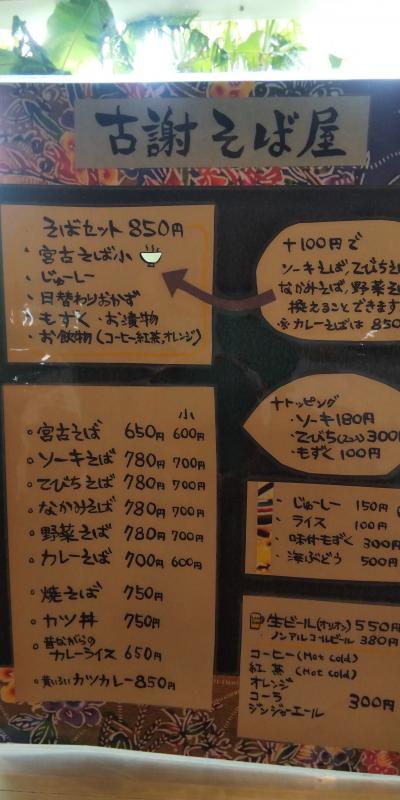 古謝そば屋
そばセット 850円
・宮古そば小
・じゅーしー
・日替わりおかず
・もずく・お漬物
・お飲物(コーヒー,紅茶,オレンジ)
+100円で
ソーキそば,てびちそ
なかみそば,野菜そ
換えることできます
※カレーそばは 850
小
・宮古そば 650円 600円
・ソーキそば 780円 700円
・てびちそば 780円 700円
・なかみそば 780円 700円
・野菜そば 780円 700円
・カレーそば 700円 600円
・焼そば 750円
・カツ丼 750円
・昔ながらの
カレーライス 650円
・黄いろいカツカレー 850円
+トッピング
・ソーキ 180円
・てびち 300円
・もずく 100円
・じゅーしー 150円
・ライス 100円
・味付もずく 300円
・海ぶどう 500円
生ビール(オリオン) 550円
・ノンアルコールビール 380円
コーヒー(Hot Cold)
紅茶 (Hot Cold)
オレンジ
コーラ 300円
ジンジャーエール